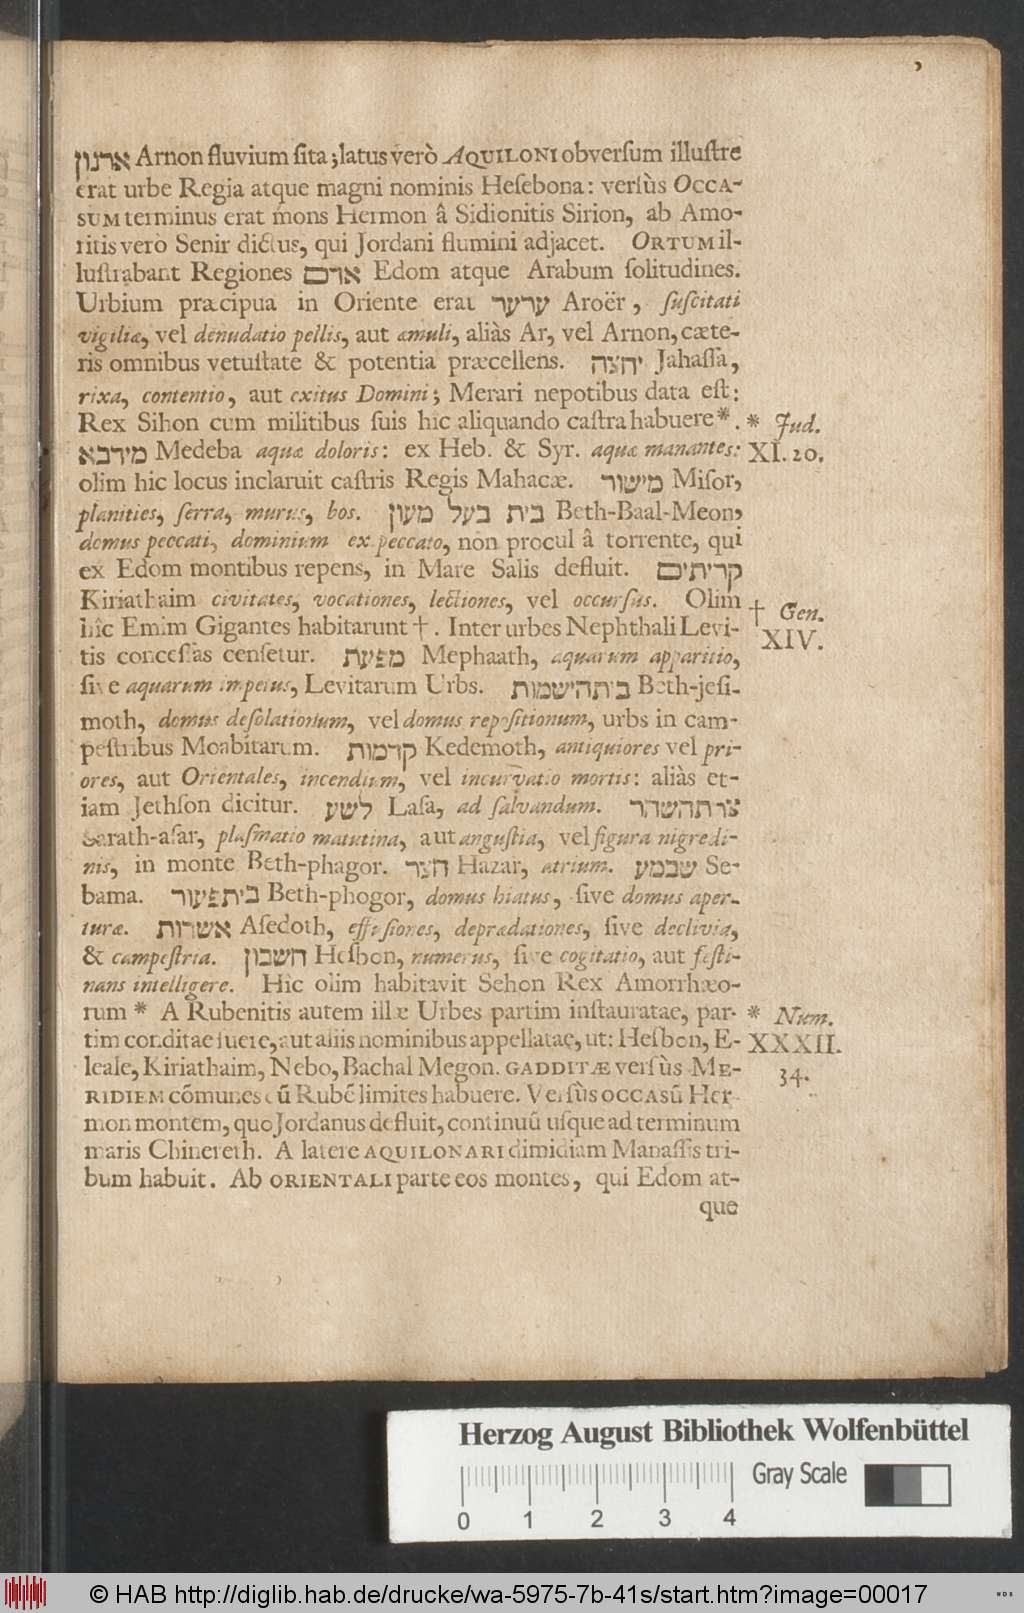 ארנון Arnon fluvium ſita; latus verò AQUILONI obverſum illuſtre
erat urbe Regia atque magni nominis Heſebona: verſùs OCCA-
SUM terminus erat mons Hermon â Sidionitis Sirion, ab Amo-
ritis verò Senir dictus, qui Jordani flumini adjacet. ORTUM il-
luſtrabant Regiones ארם Edom atque Arabum ſolitudines.
Urbium præcipua in Oriente erat ערער Aroër, ſuſcitati
vigiliæ, vel denudatio pellis, aut æmuli, aliàs Ar, vel Arnon, cæte-
ris omnibus vetuſtate & potentia præcellens. יהצה Jahaſſa,
rixa, contentio, aut exitus Domini; Merari nepotibus data eſt:
Rex Sihon cum militibus ſuis hîc aliquando caſtra habuere*. * Jud.
מידבא Medeba aquæ doloris: ex Heb. & Syr. aquæ manantes: XI. 20.
olim hic locus inclaruit caſtris Regis Mahacæ. מישור Miſor,
planities, ſerra, murus, bos. בית בעל מעון Beth-Baal-Meon,
domus peccati, dominium ex peccato, non procul â torrente, qui
ex Edom montibus repens, in Mare Salis defluit. קריתים
Kiriathaim civitates, vocationes, lectiones, vel occurſus. Olim † Gen.
hîc Emim Gigantes habitarunt †. Inter urbes Nephthali Levi- XIV.
tis conceſſas cenſetur. מפעת Mephaath, aquarum apparitio,
ſive aquarum impetus, Levitarum Urbs. ביתהישמות Beth-jeſi-
moth, domus deſolationum, vel domus repoſitionum, urbs in cam-
peſtribus Moabitarum. קדמות Kedemoth, antiquiores vel pri-
ores, aut Orientales, incendium, vel incurvatio mortis: aliàs et-
iam Jethſon dicitur. לשע Laſa, ad ſalvandum. צרתהשהר
Sarath-aſar, plaſmatio matutina, aut anguſtia, vel figura nigredi-
nis, in monte Beth-phagor. חצר Hazar, atrium. שבמע Se-
bama. ביתפעור Beth-phogor, domus hiatus, ſive domus aper-
turæ. אשרות Aſedoth, effuſiones, deprædationes, ſive declivia,
& campeſtria. חשבון Heſbon, numerus, ſive cogitatio, aut feſti-
nans intelligere. Hic olim habitavit Sehon Rex Amorrhæo-
rum * A Rubenitis autem illæ Urbes partim inſtauratae, par- * Num.
tim conditae fuere, aut aliis nominibus appellatae, ut: Heſbon, E- XXXII.
leale, Kiriathaim, Nebo, Bachal Megon. GADDITÆ verſùs ME- 34.
RIDIEM cõmunes cũ Rubẽ limites habuere. Verſùs OCCASŨ Her-
mon montem, quo Jordanus defluit, continuũ uſque ad terminum
maris Chinereth. A latere AQUILONARI dimidiam Manaſſis tri-
bum habuit. Ab ORIENTALI parte eos montes, qui Edom at-
que
Herzog August Bibliothek Wolfenbüttel
Gray Scale
0 1 2 3 4
© HAB http://diglib.hab.de/drucke/wa-5975-7b-41s/start.htm?image=00017